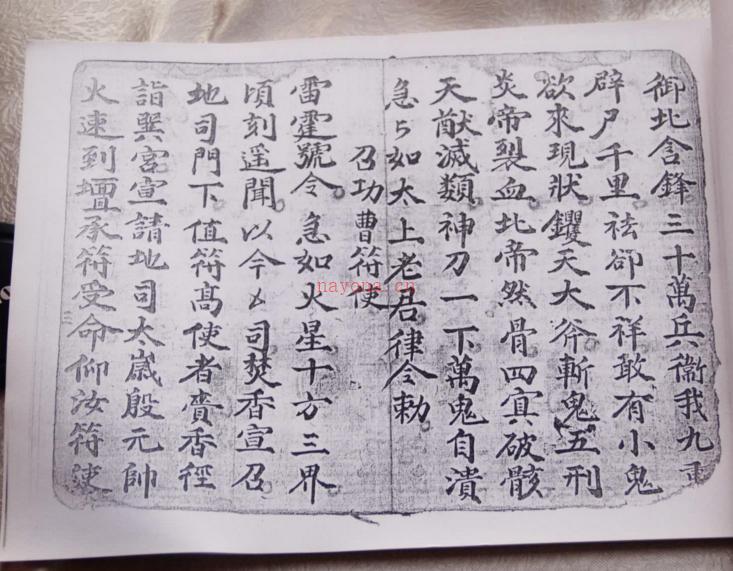 御北含鋒三十萬兵衞我九重
辟尸千里祛卻不祥敢有小鬼
欲來現狀钁天大斧斬鬼五刑
炎帝裂血北帝然骨四冥破骸
天猷滅類神刀一下萬鬼自潰
急々如太上老君律令勅
召功曹符使
雷霆號令急如火星十方三界
頃刻遥聞以今 司焚香宣召
地司門下值符髙使者賫香徑
詣巽宮宣請地司太歲殷元帥
火速到壇承符受命仰汝符使
nayona.cn